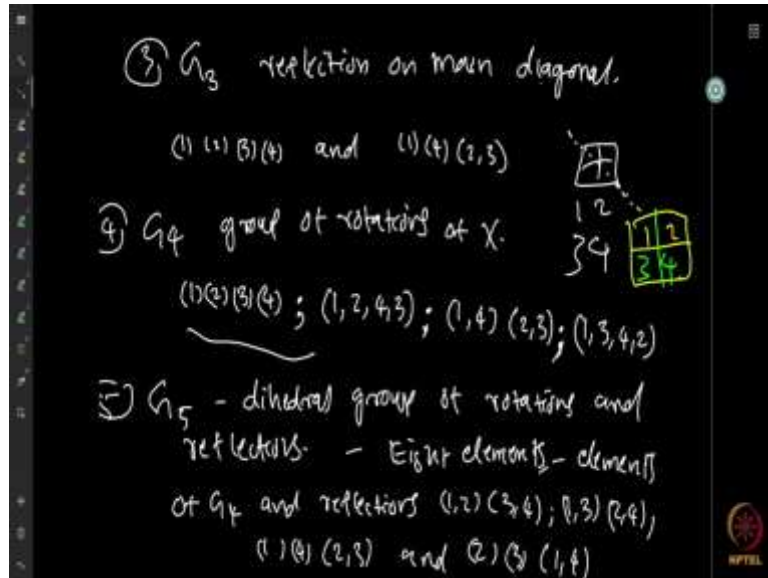 ③ G3 reflection on main diagonal.
(1) (2) (3) (4) and (1) (4) (2,3)
1 2
3 4
1 2
3 4
④ G4 group of rotations of X.
(1)(2)(3)(4) ; (1,2,4,3) ; (1,4) (2,3) ; (1,3,4,2)
⑤ G5 - dihedral group of rotations and
reflections. - Eight elements - elements
of G4 and reflections (1,2) (3,4) ; (1,3) (2,4) ,
(1) (4) (2,3) and (2) (3) (1,4)
NPTEL